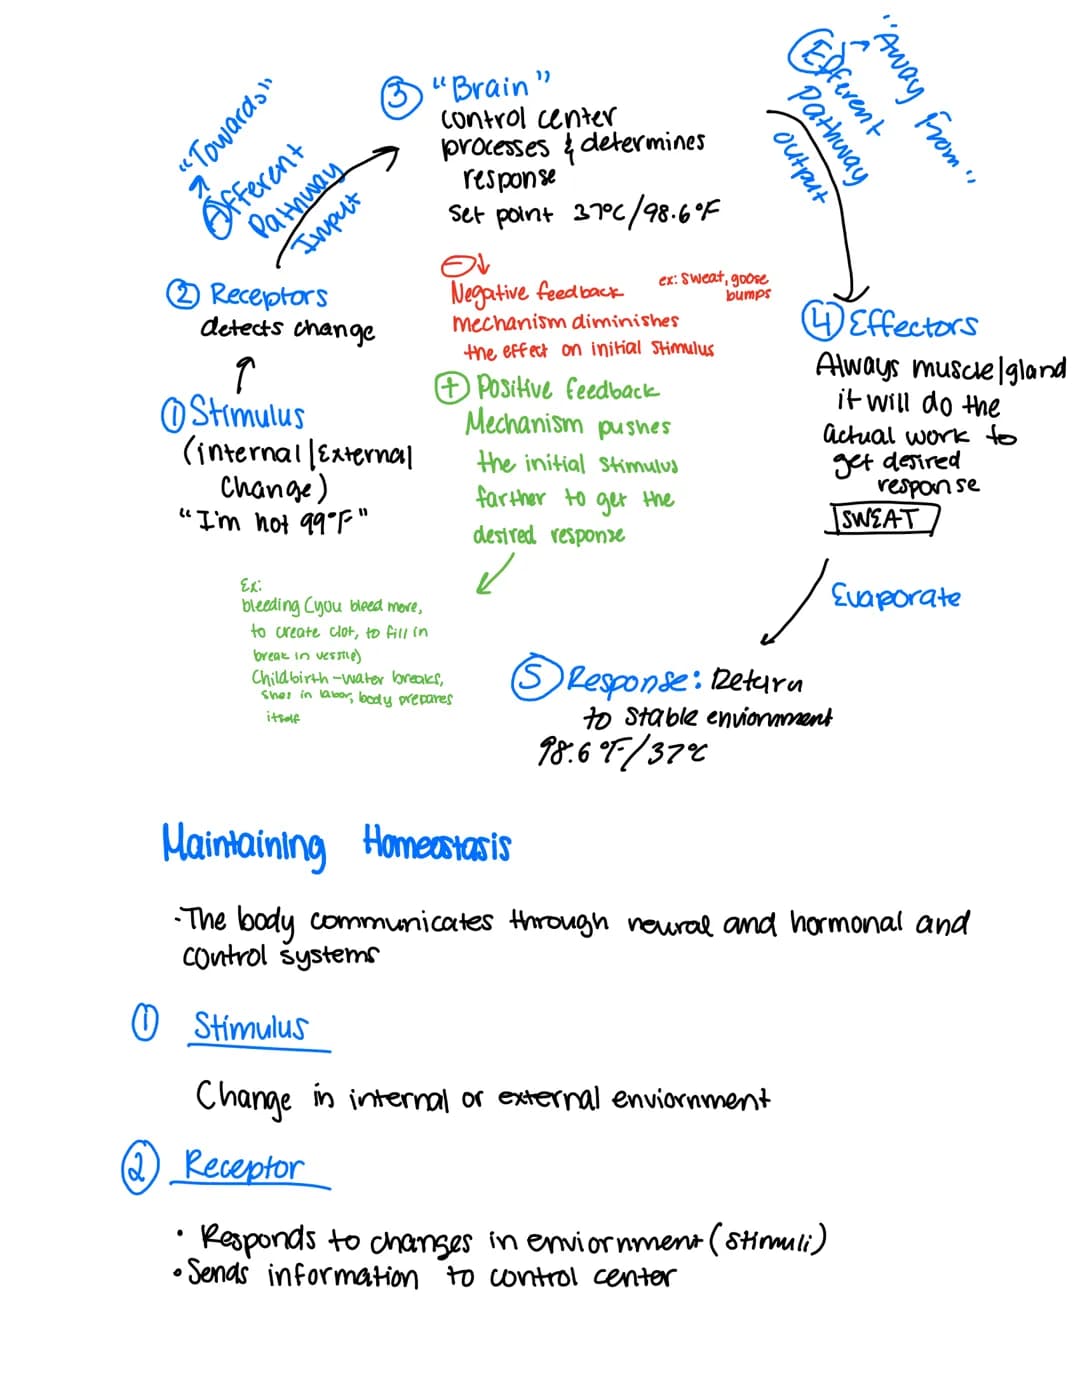 "Towards"
Afferent
Pathway
Input
③ "Brain"
control center
processes & determines
response
set point 37°C/98.6°F
Efferent → "Away From"
Pathway
output
② Receptors
detects change
① Stimulus
(internal/External
change)
"I'm hot 99°F"
⊖↓
Negative feedback
mechanism diminishes
the effect on initial stimulus
ex: sweat, goose
bumps
⊕ Positive feedback
Mechanism pushes
the initial stimulus
farther to get the
desired response
④ Effectors
Always muscle/gland
it will do the
actual work to
get desired
response
SWEAT
Evaporate
Ex:
bleeding (you bleed more,
to create clot, to fill in
break in)
Childbirth - water breaks,
shes in labor, body prepares
itself
⑤ Response: Return
to stable enviornment
98.6°F/37°C
Maintaining Homeostasis
·The body communicates through neural and hormonal and
control systems
① Stimulus
Change in internal or external enviornment
② Receptor
• Responds to changes in enviornment (stimuli)
• Sends information to control center